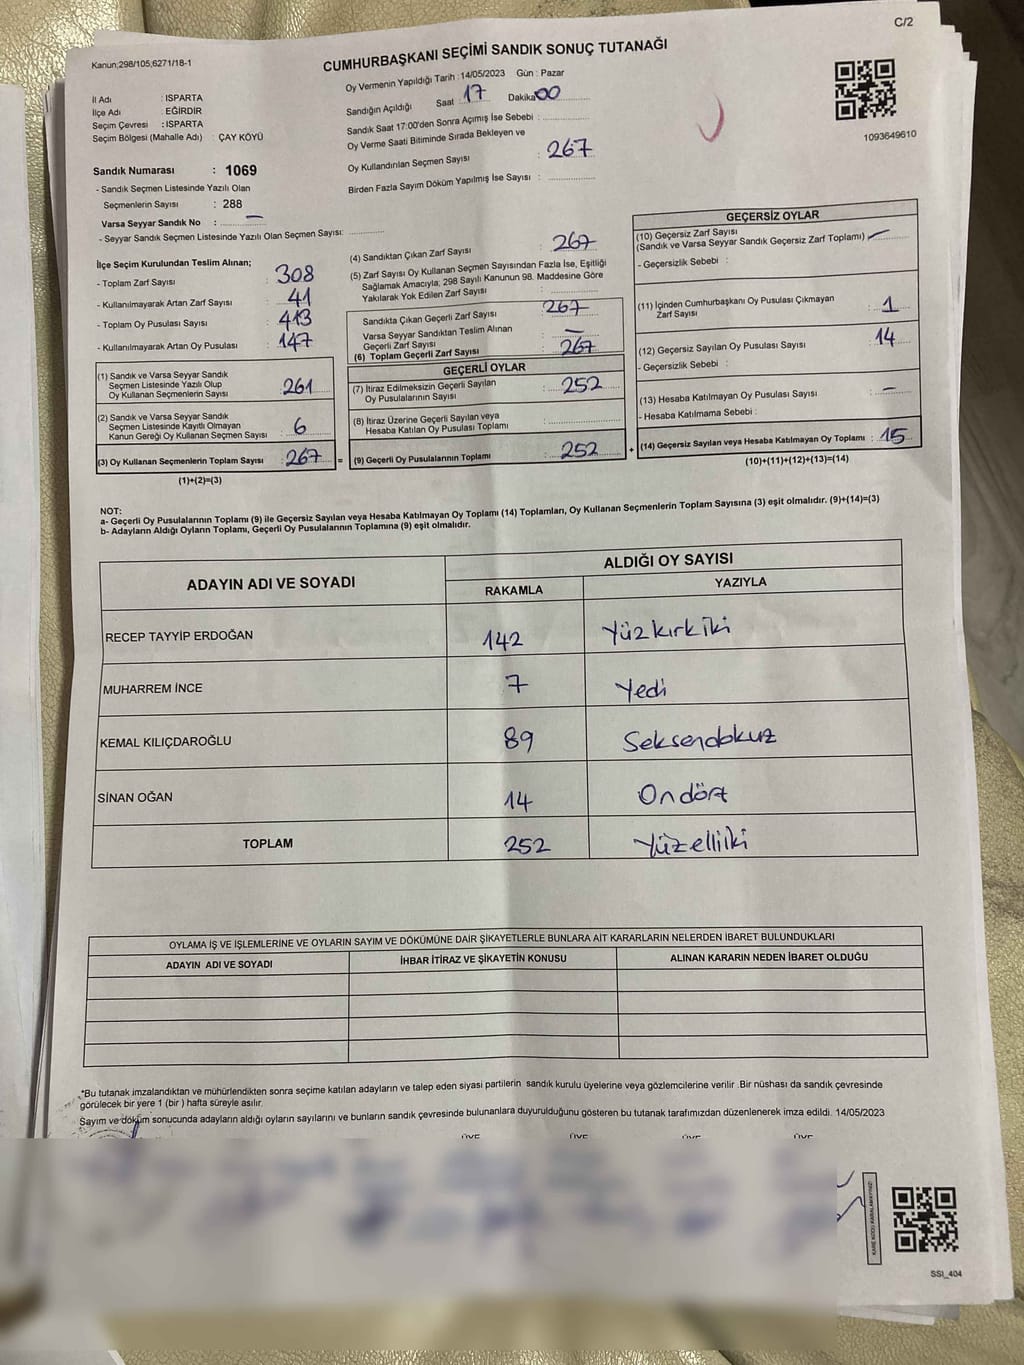 C/2
Kanun;298/105;6271/18-1
CUMHURBAŞKANI SEÇİMİ SANDIK SONUÇ TUTANAĞI
Oy Vermenin Yapıldığı Tarih : 14/05/2023 Gün : Pazar
İl Adı : ISPARTA
İlçe Adı : EĞİRDİR
Seçim Çevresi : ISPARTA
Seçim Bölgesi (Mahalle Adı) : ÇAY KÖYÜ
Sandık Numarası : 1069
- Sandık Seçmen Listesinde Yazılı Olan
Seçmenlerin Sayısı : 288
Varsa Seyyar Sandık No : —
- Seyyar Sandık Seçmen Listesinde Yazılı Olan Seçmen Sayısı:
Sandığın Açıldığı Saat 17 Dakika 00
Sandık Saat 17:00'den Sonra Açımış İse Sebebi :
Oy Verme Saati Bitiminde Sırada Bekleyen ve
Oy Kullandırılan Seçmen Sayısı : 267
Birden Fazla Sayım Döküm Yapılmış İse Sayısı :
1093649610
İlçe Seçim Kurulundan Teslim Alınan;
- Toplam Zarf Sayısı : 308
- Kullanılmayarak Artan Zarf Sayısı : 41
- Toplam Oy Pusulası Sayısı : 413
- Kullanılmayarak Artan Oy Pusulası : 147
(1) Sandık ve Varsa Seyyar Sandık
Seçmen Listesinde Yazılı Olup
Oy Kullanan Seçmenlerin Sayısı : 261
(2) Sandık ve Varsa Seyyar Sandık
Seçmen Listesinde Kayıtlı Olmayan
Kanun Gereği Oy Kullanan Seçmen Sayısı : 6
(3) Oy Kullanan Seçmenlerin Toplam Sayısı : 267 =
(1)+(2)=(3)
(4) Sandıktan Çıkan Zarf Sayısı : 267
(5) Zarf Sayısı Oy Kullanan Seçmen Sayısından Fazla İse, Eşitliği
Sağlamak Amacıyla; 298 Sayılı Kanunun 98. Maddesine Göre
Yakılarak Yok Edilen Zarf Sayısı :
Sandıkta Çıkan Geçerli Zarf Sayısı : 267
Varsa Seyyar Sandıktan Teslim Alınan
Geçerli Zarf Sayısı : —
(6) Toplam Geçerli Zarf Sayısı : 267
GEÇERLİ OYLAR
(7) İtiraz Edilmeksizin Geçerli Sayılan
Oy Pusulalarının Sayısı : 252
(8) İtiraz Üzerine Geçerli Sayılan veya
Hesaba Katılan Oy Pusulası Toplamı :
(9) Geçerli Oy Pusulalarının Toplamı : 252 +
GEÇERSİZ OYLAR
(10) Geçersiz Zarf Sayısı
(Sandık ve Varsa Seyyar Sandık Geçersiz Zarf Toplamı) : —
- Geçersizlik Sebebi :
(11) İçinden Cumhurbaşkanı Oy Pusulası Çıkmayan
Zarf Sayısı : 1
(12) Geçersiz Sayılan Oy Pusulası Sayısı : 14
- Geçersizlik Sebebi :
(13) Hesaba Katılmayan Oy Pusulası Sayısı : —
- Hesaba Katılmama Sebebi :
(14) Geçersiz Sayılan veya Hesaba Katılmayan Oy Toplamı : 15
(10)+(11)+(12)+(13)=(14)
NOT:
a- Geçerli Oy Pusulalarının Toplamı (9) ile Geçersiz Sayılan veya Hesaba Katılmayan Oy Toplamı (14) Toplamları, Oy Kullanan Seçmenlerin Toplam Sayısına (3) eşit olmalıdır. (9)+(14)=(3)
b- Adayların Aldığı Oyların Toplamı, Geçerli Oy Pusulalarının Toplamına (9) eşit olmalıdır.
ADAYIN ADI VE SOYADI ALDIĞI OY SAYISI
RAKAMLA YAZIYLA
RECEP TAYYİP ERDOĞAN 142 Yüzkırkiki
MUHARREM İNCE 7 Yedi
KEMAL KILIÇDAROĞLU 89 Seksendokuz
SİNAN OĞAN 14 Ondört
TOPLAM 252 Yüzelliiki
OYLAMA İŞ VE İŞLEMLERİNE VE OYLARIN SAYIM VE DÖKÜMÜNE DAİR ŞİKAYETLERLE BUNLARA AİT KARARLARIN NELERDEN İBARET BULUNDUKLARI
ADAYIN ADI VE SOYADI İHBAR İTİRAZ VE ŞİKAYETİN KONUSU ALINAN KARARIN NEDEN İBARET OLDUĞU
*Bu tutanak imzalandıktan ve mühürlendikten sonra seçime katılan adayların ve talep eden siyasi partilerin sandık kurulu üyelerine veya gözlemcilerine verilir .Bir nüshası da sandık çevresinde
görülecek bir yere 1 (bir ) hafta süreyle asılır.
Sayım ve döküm sonucunda adayların aldığı oyların sayılarını ve bunların sandık çevresinde bulunanlara duyurulduğunu gösteren bu tutanak tarafımızdan düzenlenerek imza edildi. 14/05/2023
ÜYE ÜYE ÜYE ÜYE
KARE KODU KARALAMAYINIZ!
SSI_404